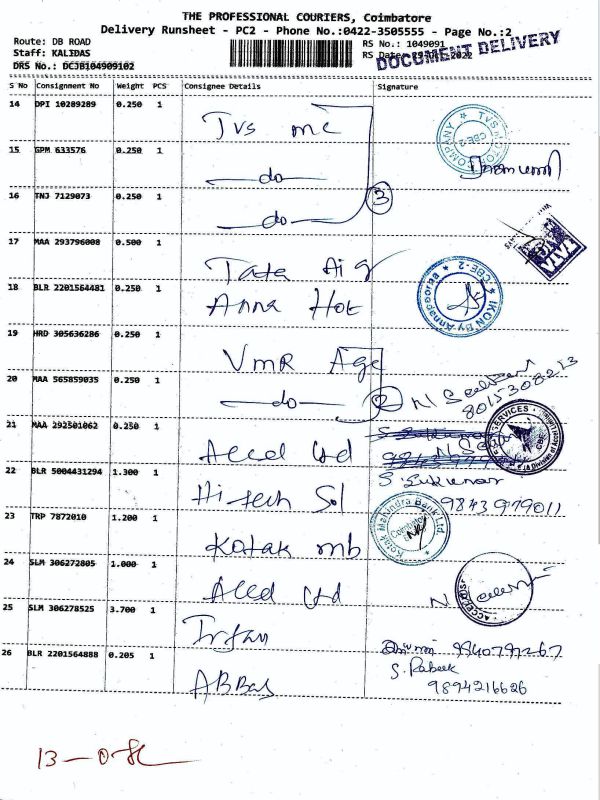 THE PROFESSIONAL COURIERS, Coimbatore
Delivery Runsheet - PC2 - Phone No.:0422-3505555 - Page No.:2
Route: DB ROAD
RS No.: 1049091
Staff: KALIDAS
RS Date: 2022
DOCUMENT DELIVERY
DRS No.: DCJB104909102
S No Consignment No Weight PCS Consignee Details Signature
14 DPI 10289289 0.250 1 Tvs mc
TVS MOTOR COMPANY CBE-2
15 GPM 633576 0.250 1 do
16 TNJ 7129073 0.250 1 do
3
17 MAA 293796008 0.500 1 Tata Aig
TATA
18 BLR 2201564481 0.250 1 Anna Hot
IKON By Annapoorna CBE-2
19 HRD 305636286 0.250 1 VMR Age
20 MAA 565859035 0.250 1 do 2
8015308213
21 MAA 292501062 0.250 1 Accd Ltd
SERVICES
22 BLR 5004431294 1.300 1 Hitech Sol
S. Sukumar
9843979011
23 TRP 7872010 1.200 1 Kotak mb
Kotak Mahindra Bank Ltd. Coimbatore
24 SLM 306272805 1.000 1 Accd Ltd
25 SLM 306278525 3.700 1 Irfan
26 BLR 2201564888 0.205 1 ABBas
9840797267
S. Rabeek
9894216626
13 - 0